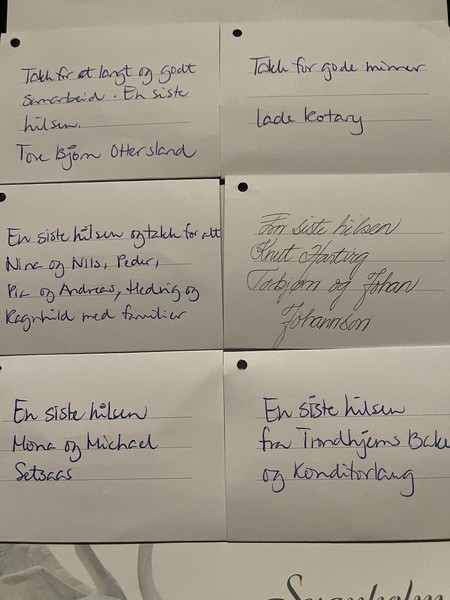 Takk for et langt og godt
samarbeid. En siste
hilsen.
Tore Bjørn Ottersland
Takk for gode minner
Lade Rotary
En siste hilsen og takk for alt
Nina og Nils, Peder,
Pia og Andreas, Hedvig og
Ragnhild med familier
En siste hilsen
Knut Hartvig
Torbjørn og Johan
Johannson
En siste hilsen
Mona og Michael
Setsaas
En siste hilsen
fra Trondhjems Bake
og Konditorlaug
Svanholm